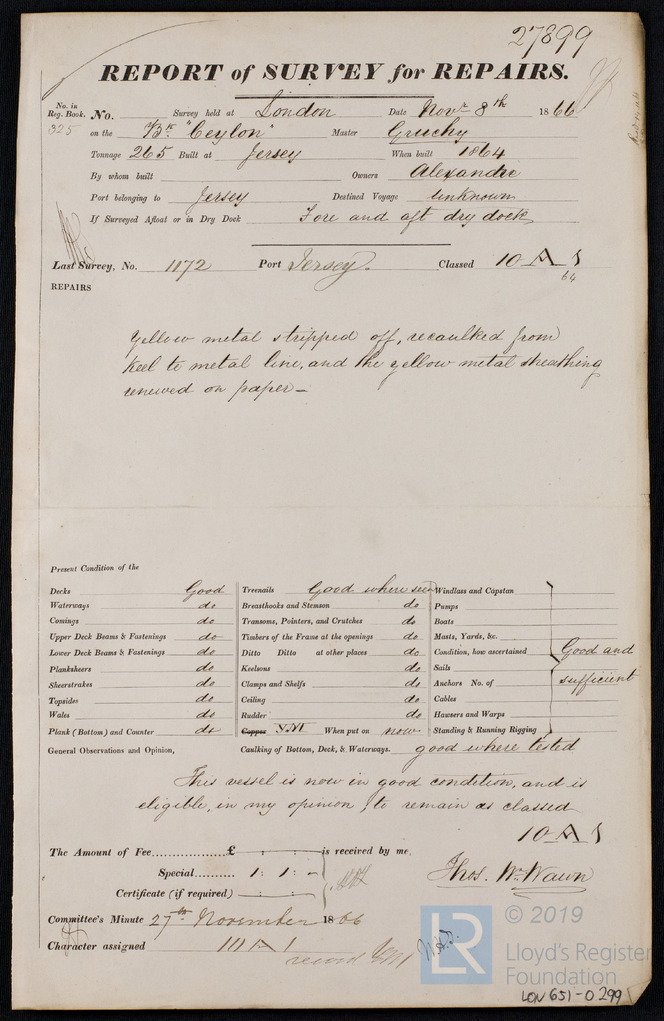 27899
REPORT of SURVEY for REPAIRS.
No. in Reg. Book. No. Survey held at London Date Novr. 8th 1866
325 on the Bk "Ceylon" Master Gruchy
Tonnage 265 Built at Jersey When built 1864
By whom built Owners Alexandre
Port belonging to Jersey Destined Voyage Unknown
If Surveyed Afloat or in Dry Dock Fore and aft dry dock
Last Survey, No. 1172 Port Jersey. Classed 10 A 1
64
REPAIRS
Yellow metal stripped off, recaulked from
Keel to metal line, and the yellow metal sheathing
renewed on paper—
Present Condition of the
Decks Good Treenails Good where seen Windlass and Capstan
Waterways do Breasthooks and Stemson do Pumps
Comings do Transoms, Pointers, and Crutches do Boats
Upper Deck Beams & Fastenings do Timbers of the Frame at the openings do Masts, Yards, &c.
Lower Deck Beams & Fastenings do Ditto Ditto at other places do Condition, how ascertained Good and
Planksheers do Keelsons do Sails
Sheerstrakes do Clamps and Shelfs do Anchors No. of sufficient
Topsides do Ceiling do Cables
Wales do Rudder do Hawsers and Warps
Plank (Bottom) and Counter do Copper YM When put on now Standing & Running Rigging
General Observations and Opinion, Caulking of Bottom, Deck, & Waterways. good where tested
This vessel is now in good condition, and is
eligible, in my opinion, to remain as classed
10 A 1
The Amount of Fee............£ : : is received by me,
Special.......... 1 : 1 : -
Thos. Wm. Wawn
Certificate (if required) : :
Committee's Minute 27th November 1866
Character assigned 10 A 1
record YM
LR
© 2019
Lloyd's Register
Foundation
LON 651-0299